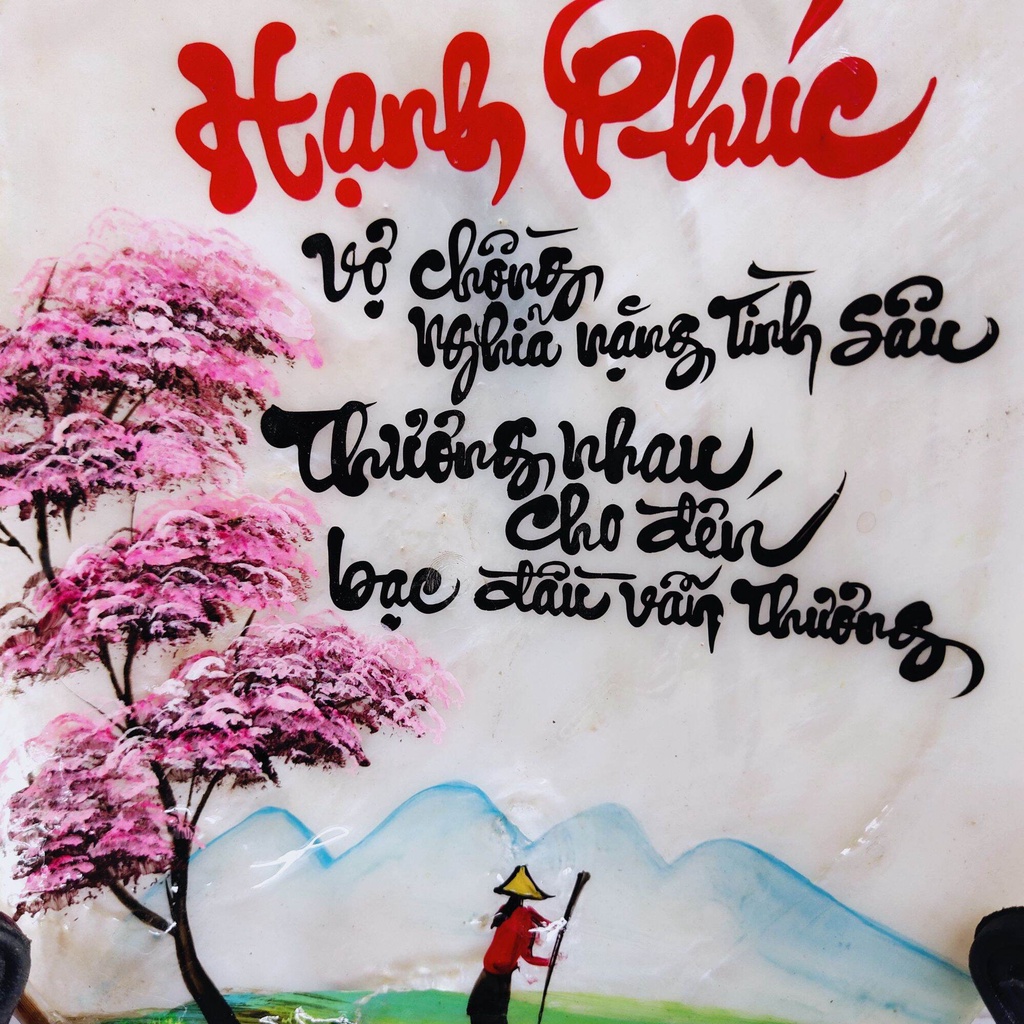 Hạnh Phúc
Vợ chồng
nghĩa nặng tình sâu
Thương nhau
cho đến
bạc đầu vẫn thương